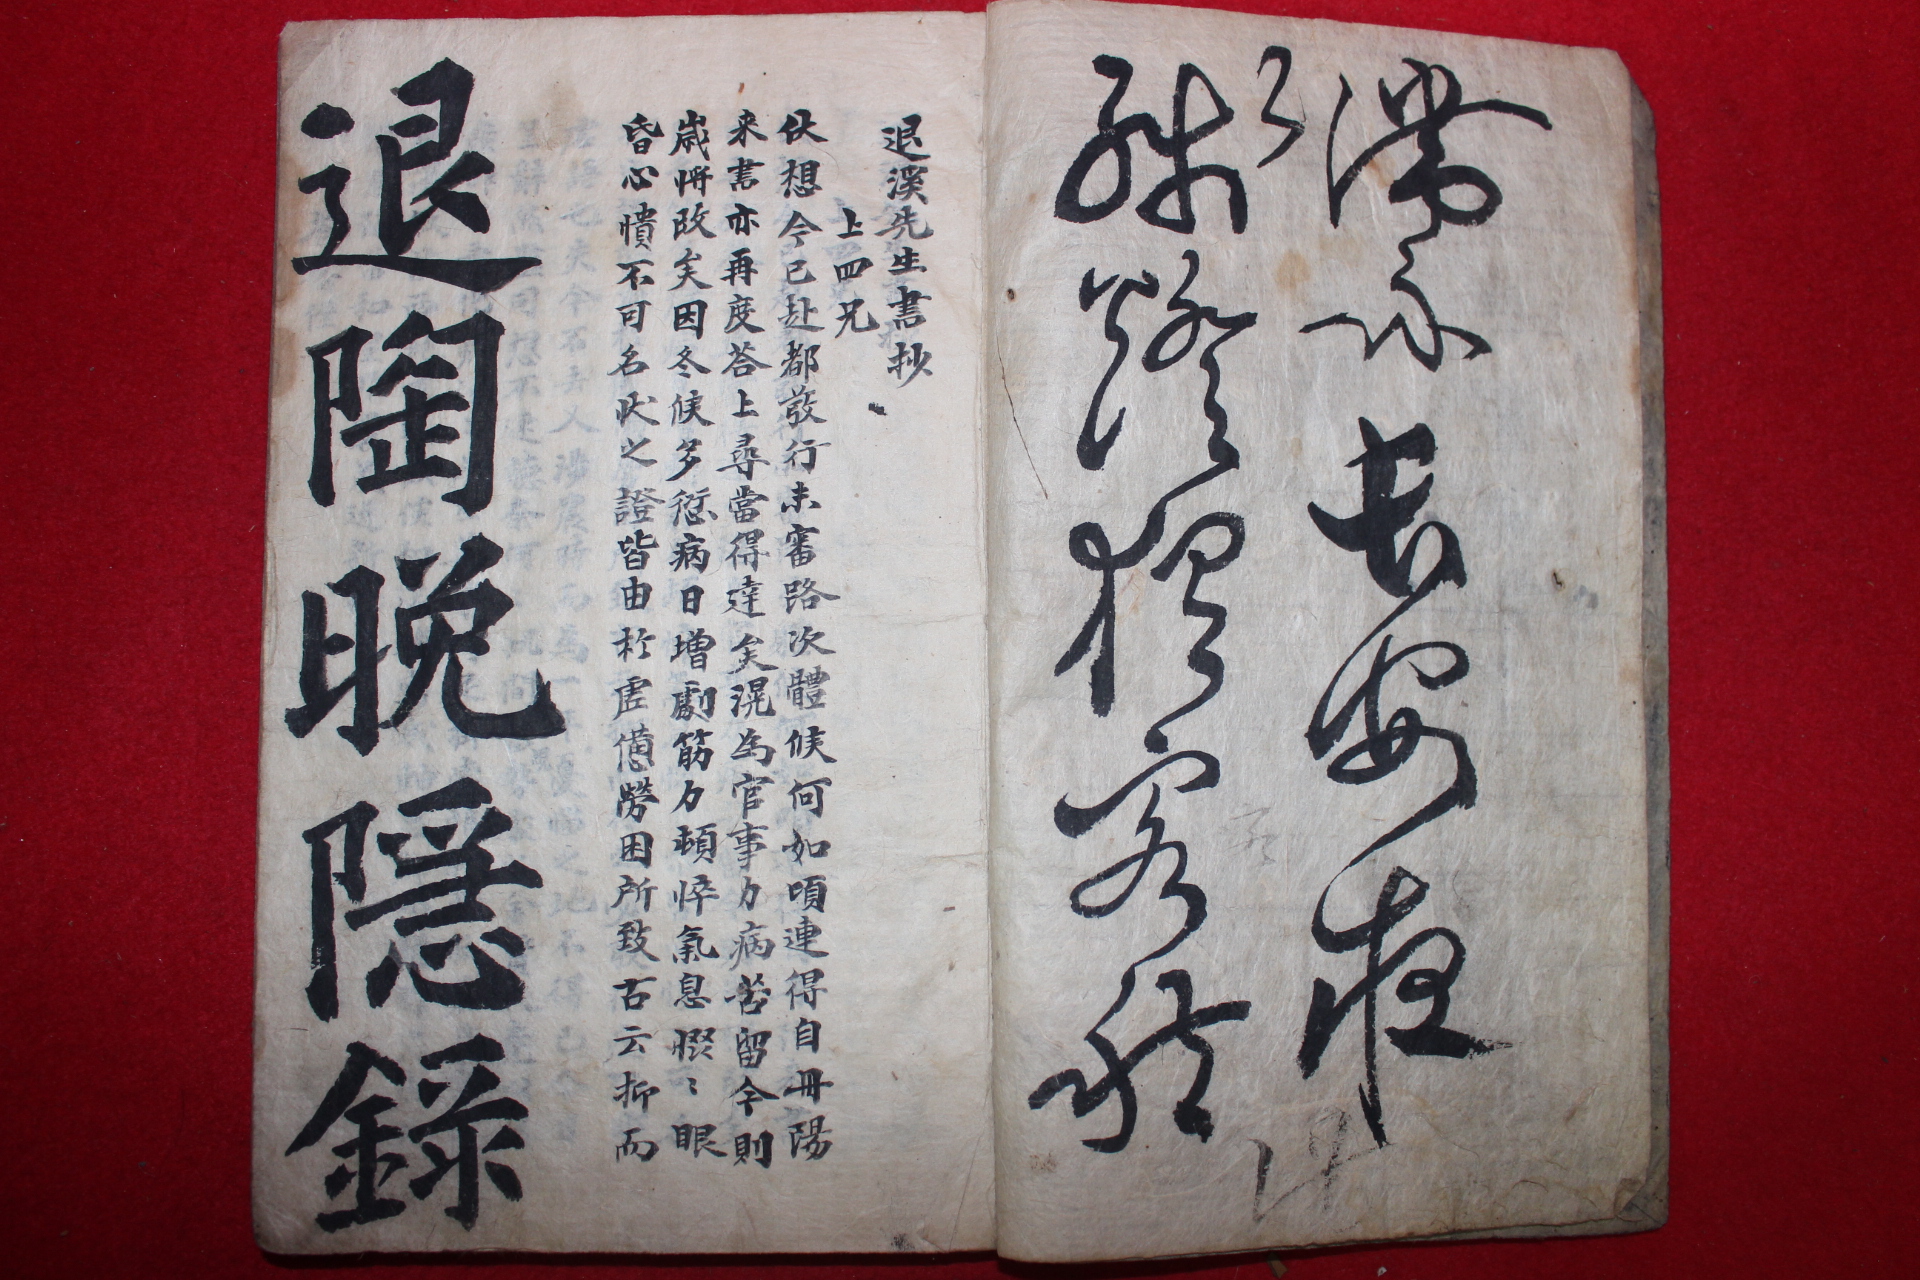 滯雨長安夜
殘燈獨客愁
退溪先生書抄
上四兄
伏想今已赴都發行未審路次體候何如頃連得自丹陽
来書亦再度答上尋當得達矣滉為官事力病苦留今則
歲將改矣因冬候多愆病日增劇筋力頓悴氣息惙〻眼
昏心憒不可名狀之證皆由於虛憊勞困所致古云抑而
退陶晩隱錄